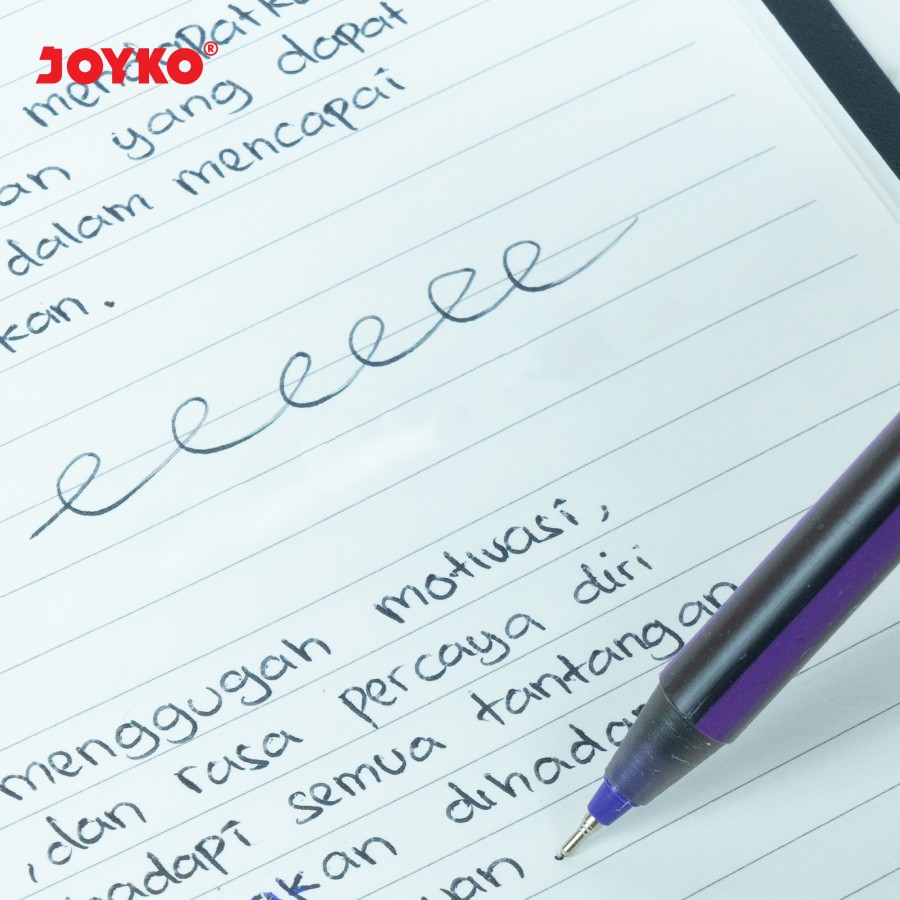 JOYKO®
yang dapat
dalam mencapai
kan.
menggugah motivasi,
,dan rasa percaya diri
hadapi semua tantangan
kan dihada